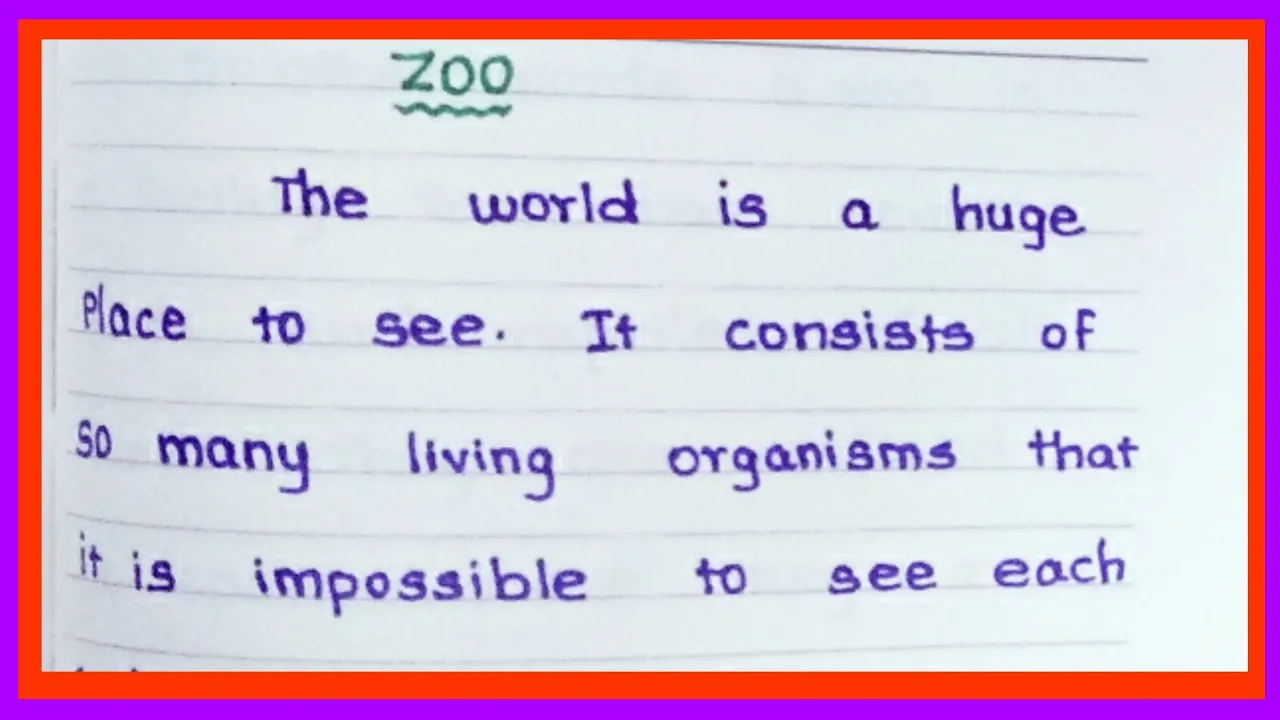 ZOO
The world is a huge
Place to see. It consists of
so many living organisms that
it is impossible to see each